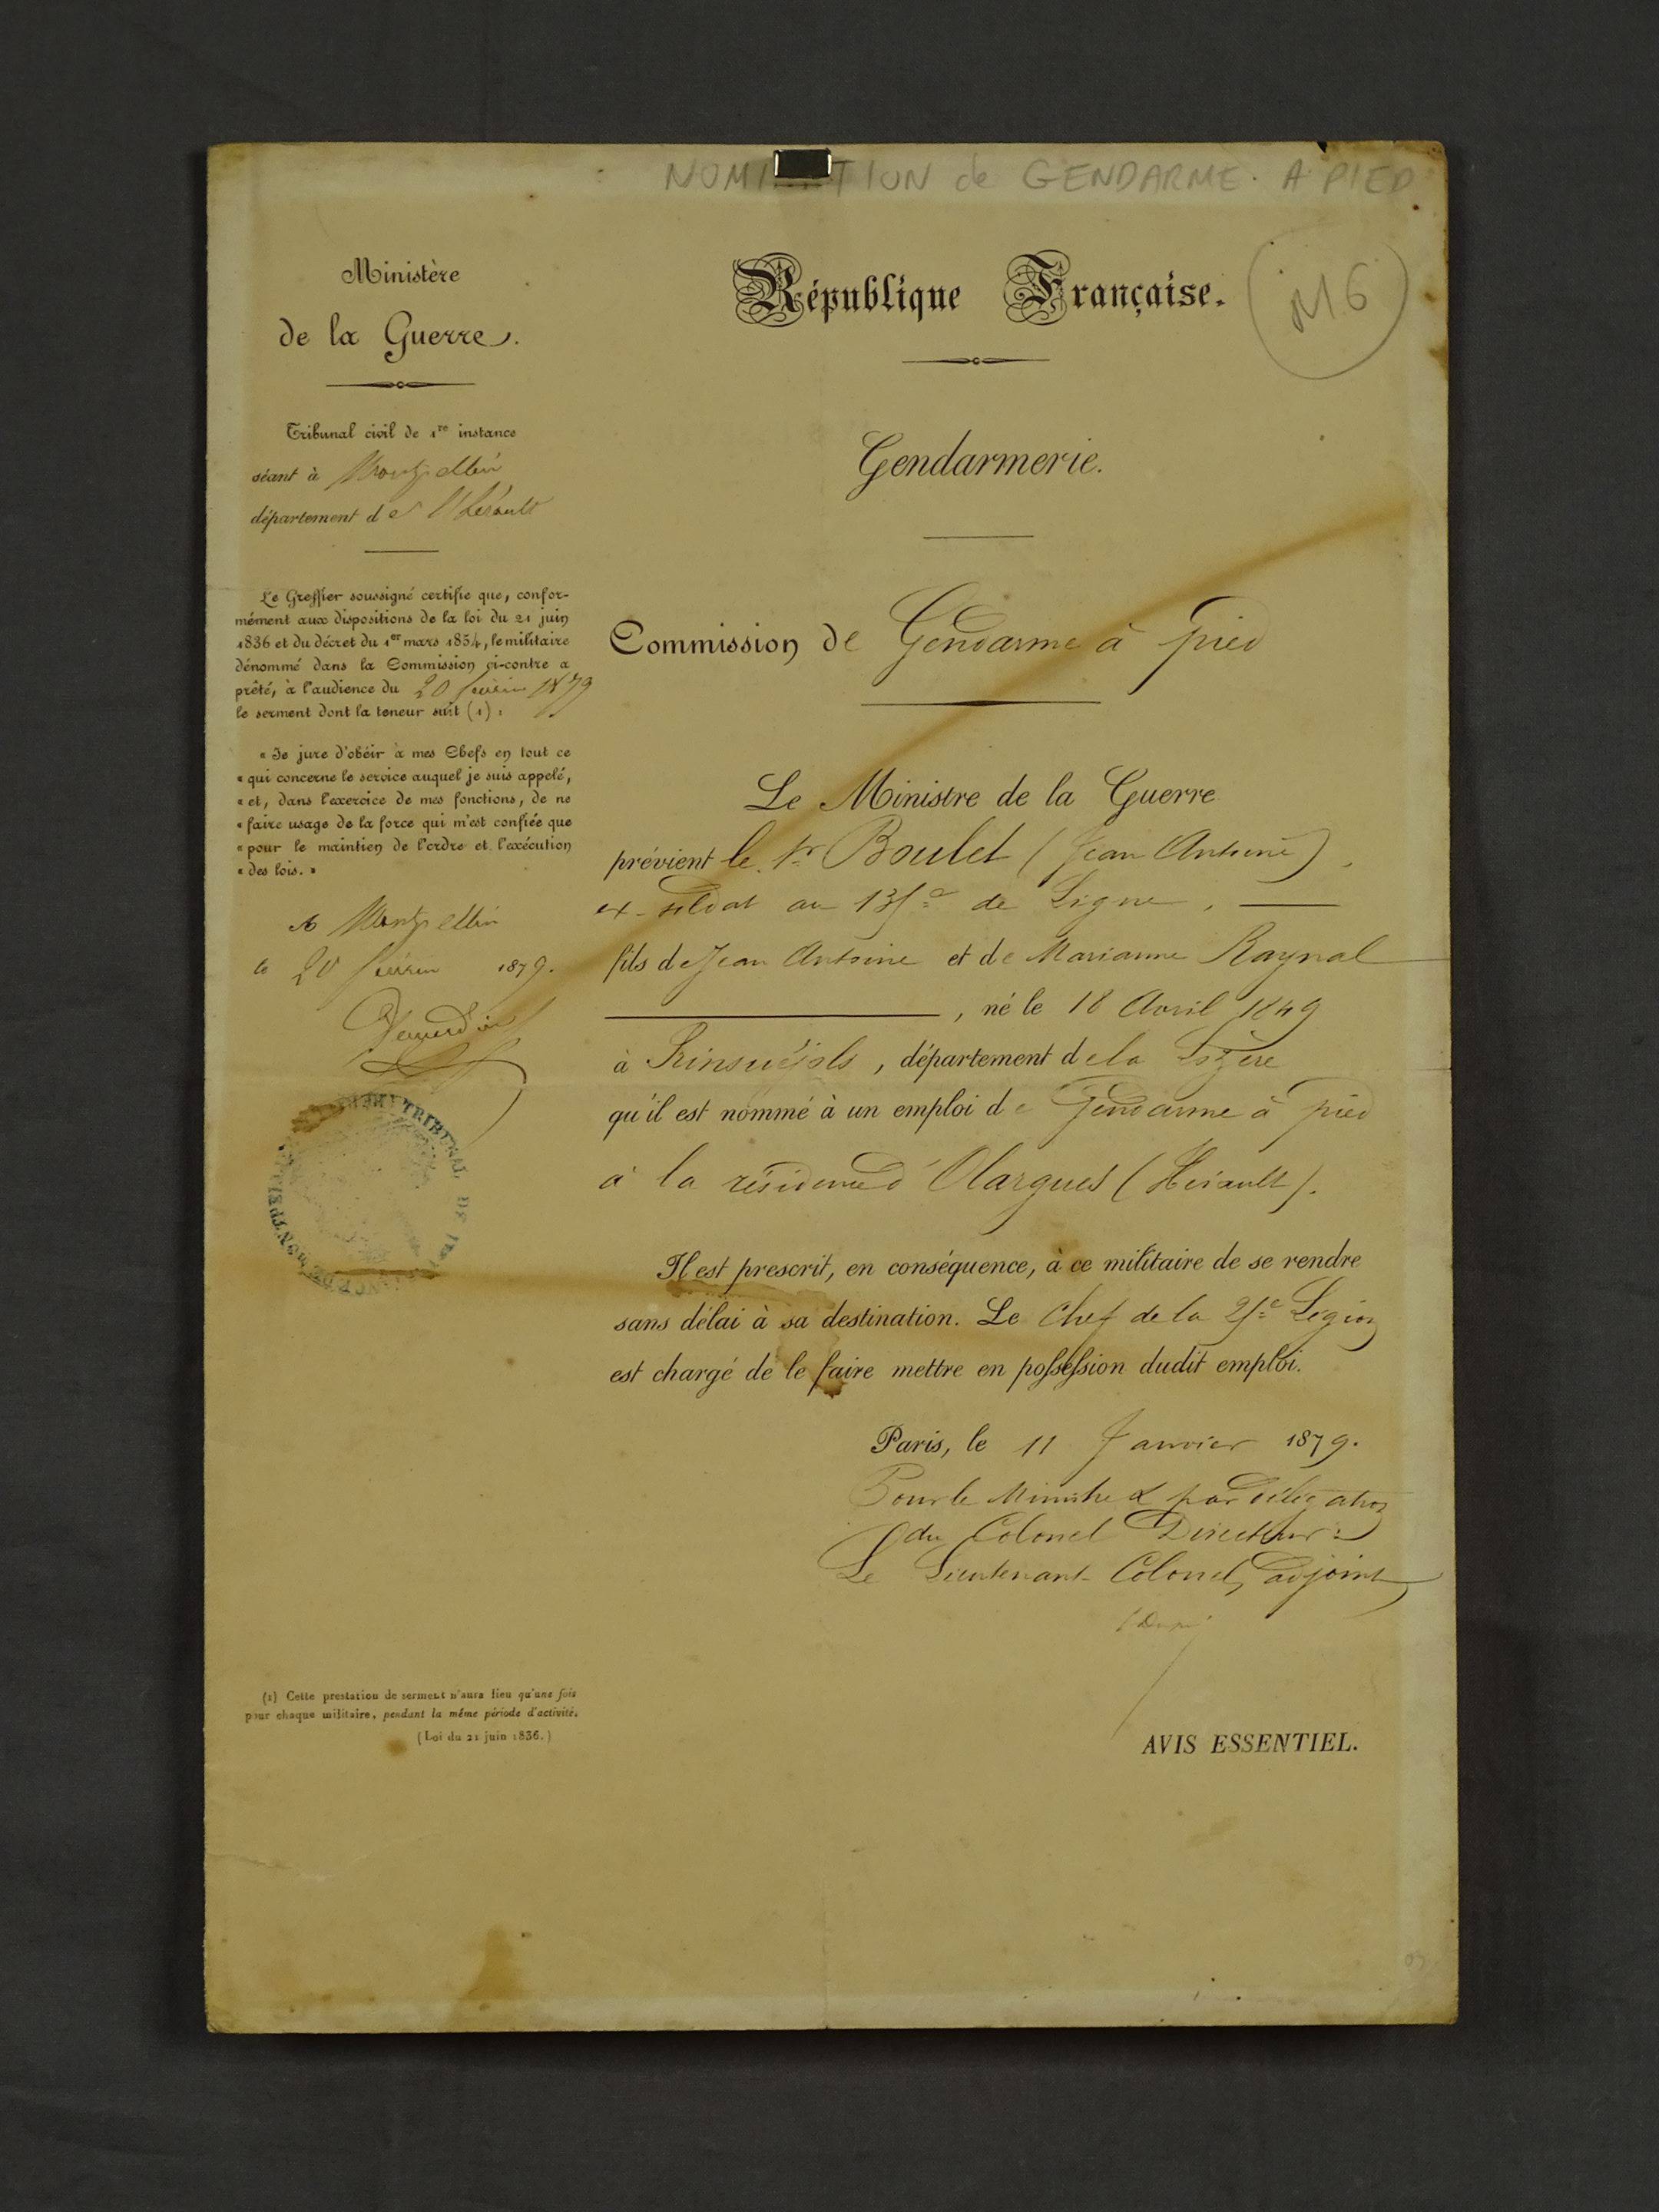 NOMI TION de GENDARME. A PIED
M6
Ministère
de la Guerre.
Tribunal civil de 1re instance
séant à Montpellier
département de l'Hérault
Le Greffier soussigné certifie que, confor-
mément aux dispositions de la loi du 21 juin
1836 et du décret du 1er mars 1854, le militaire
dénommé dans la Commission ci-contre a
prêté, à l'audience du 20 février 1879
le serment dont la teneur suit (1) :
« Je jure d'obéir à mes Chefs en tout ce
« qui concerne le service auquel je suis appelé,
« et, dans l'exercice de mes fonctions, de ne
« faire usage de la force qui m'est confiée que
« pour le maintien de l'ordre et l'exécution
« des lois. »
A Montpellier
le 20 février 1879.
TRIBUNAL DE
(1) Cette prestation de serment n'aura lieu qu'une fois
pour chaque militaire, pendant la même période d'activité.
(Loi du 21 juin 1836.)
République Française.
Gendarmerie.
Commission de Gendarme à pied
Le Ministre de la Guerre
prévient le Sr Boulet (Jean Antoine)
ex-soldat au de Ligne,
fils de Jean Antoine et de Marianne Raynal
, né le 18 Avril 1849
à Prinsuéjols, département de la Lozère
qu'il est nommé à un emploi de Gendarme à pied
à la résidence d'Olargues (Hérault).
Il est prescrit, en conséquence, à ce militaire de se rendre
sans délai à sa destination. Le Chef de la Légion
est chargé de le faire mettre en possession dudit emploi.
Paris, le 11 Janvier 1879.
Pour le Ministre & par délégation
du Colonel Directeur :
Le Lieutenant-Colonel, adjoint
AVIS ESSENTIEL.